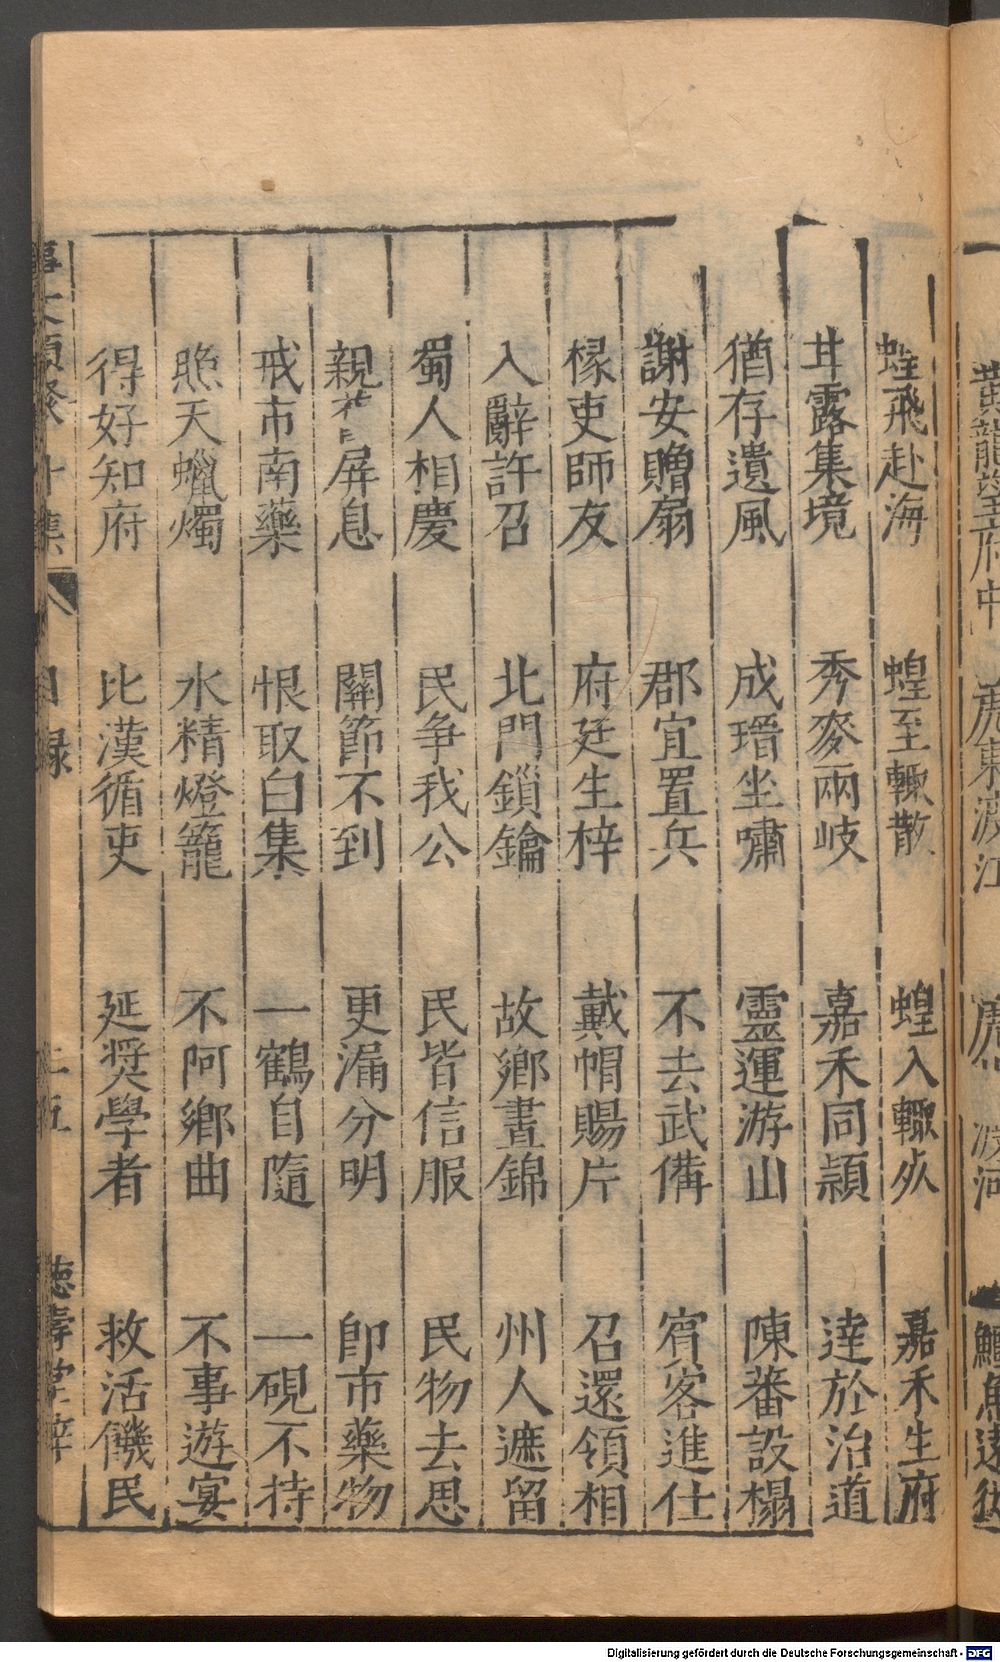 蝗飛赴海　蝗至輙散　蝗入輙死　嘉禾生府
甘露集境　秀麥兩岐　嘉禾同穎　達於治道
猶存遺風　成瑨坐嘯　靈運游山　陳蕃設榻
謝安贈扇　郡宜置兵　不去武備　賓客進仕
椽吏師友　府廷生梓　戴帽賜片　召還領相
入辭許召　北門鎻鑰　故鄉晝錦　州人遮留
蜀人相慶　民争我公　民皆信服　民物去思
親 屏息　關節不到　更漏分明　卽市藥物
戒市南藥　恨取白集　一鶴自隨　一硯不持
照天蠟燭　水精燈籠　不阿鄉曲　不事遊宴
得好知府　比漢循吏　延奨學者　救活饑民
事文類聚 集 目録 德壽堂梓
黄龍 府中 虎東渡江 渡河
Digitalisierung gefördert durch die Deutsche Forschungsgemeinschaft - DFG